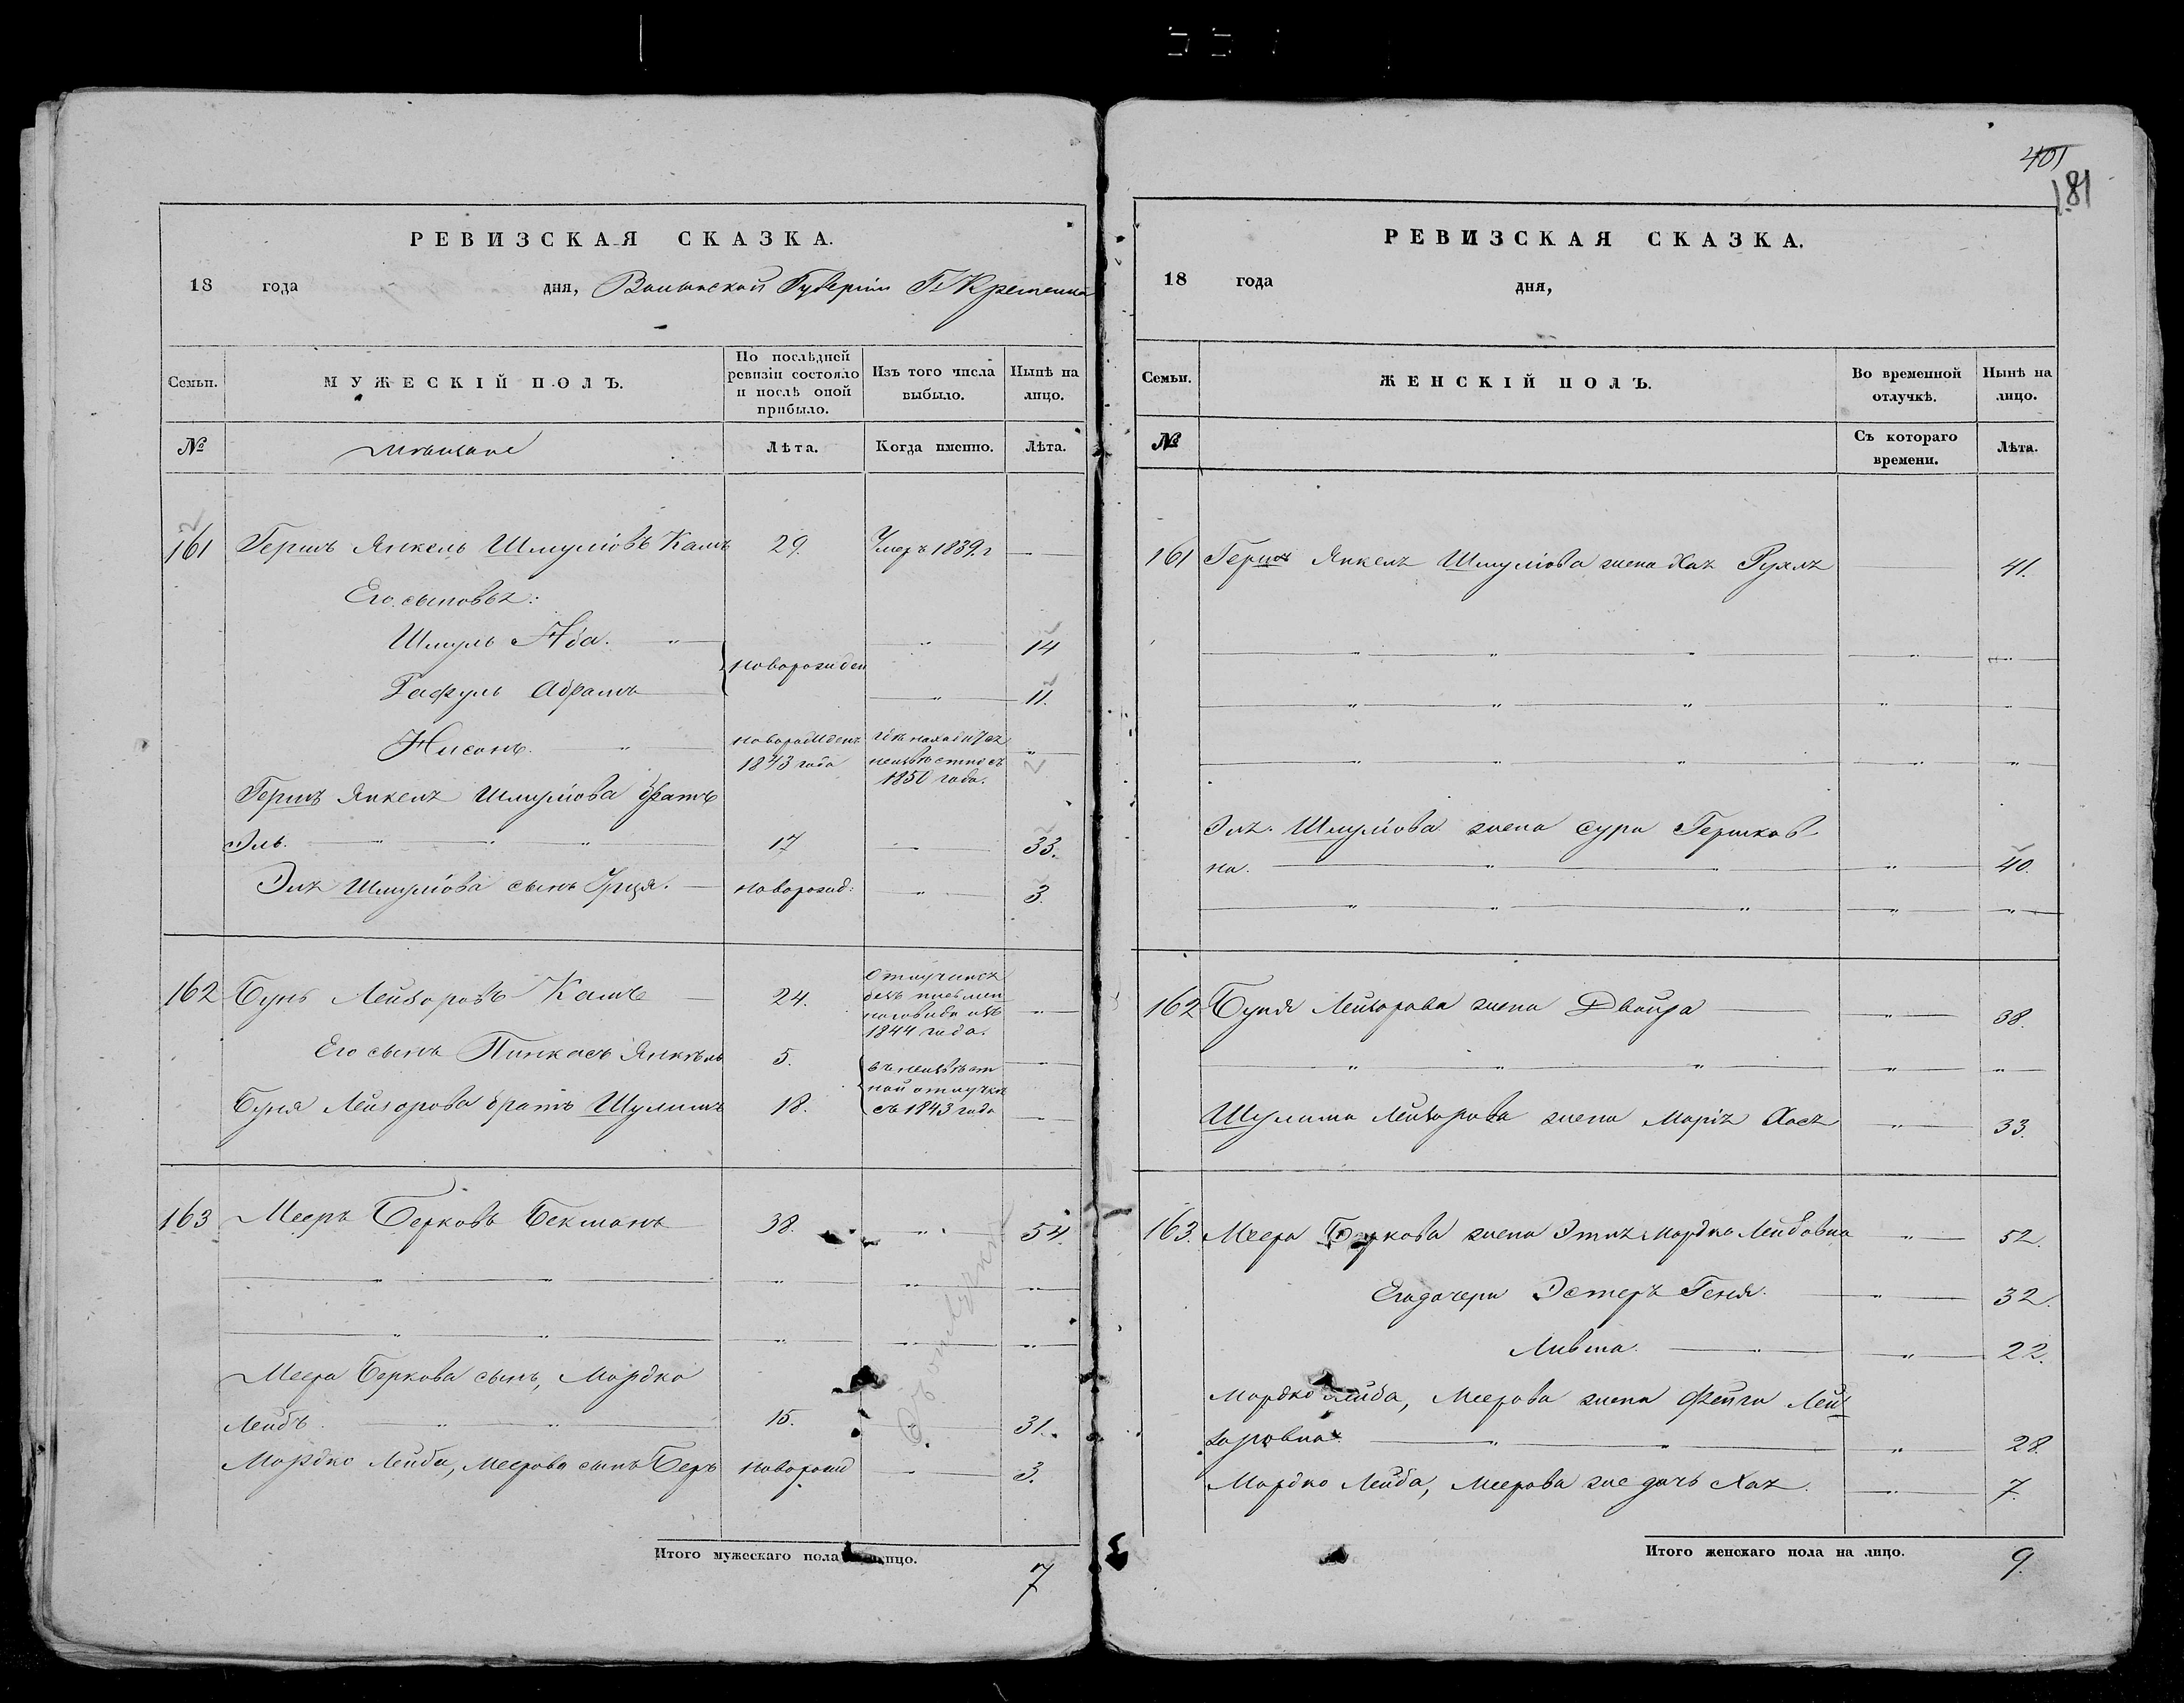 РЕВИЗСКАЯ СКАЗКА.
18 года дня, Волынской Губерніи Г. Кременца
Семьи. МУЖЕСКІЙ ПОЛЪ. По послѣдней ревизіи состояло и послѣ оной прибыло. Изъ того числа выбыло. Нынѣ на лицо.
№ Мѣщане Лѣта. Когда именно. Лѣта.
161 Гершъ Янкель Шмулiовъ Кацъ 29. Умеръ 1839. г
Его сыновья:
Шмуль Аба. 14
новорожден
Рафуль Абрамъ 11.
Нисонъ. новорожденъ 1843 года находится неизвѣстно съ 1850 года.
Гершъ Янкеля Шмулiова братъ
Эль. 17 33.
Эля Шмулiова сынъ новорожд: 3.
162 Бунь Лейзоровъ 24. Отлучился безъ письменного вида изъ 1844 года.
Его сынъ Пинкасъ Янкель 5.
въ неизвѣстной отлучкѣ съ 1843 года
Буня Лейзорова братъ Шулимъ 18.
163 Мееръ Берковъ Бекманъ 38. 54
Меера Беркова сынъ, Мордко
Лейбъ. 15. 31.
Мордко Лейба, Меерова сынъ Беръ новорожд 3.
Итого мужескаго пола лицо. 7
401
181
РЕВИЗСКАЯ СКАЗКА.
18 года дня,
Семьи. ЖЕНСКІЙ ПОЛЪ. Во временной отлучкѣ. Нынѣ на лицо.
№ Съ котораго времени. Лѣта.
161 Герша Янкеля Шмулiова жена Хая Рухля 41.
Эля Шмулiова жена Сура Гершков
на. 40.
162 Буня Лейзорова жена Двойра 38.
Шулима Лейзорова жена Марiя Хася 33.
163. Меера Беркова жена Этля Мордко Лейбовна 52.
Его дочери Эстеръ Геня. 32.
Ливша. 22.
Мордко Лейба, Меерова жена Фейга Лей
зоровна. 28.
Мордко Лейба, Меерова дочь Хая. 7.
Итого женскаго пола на лицо. 9.